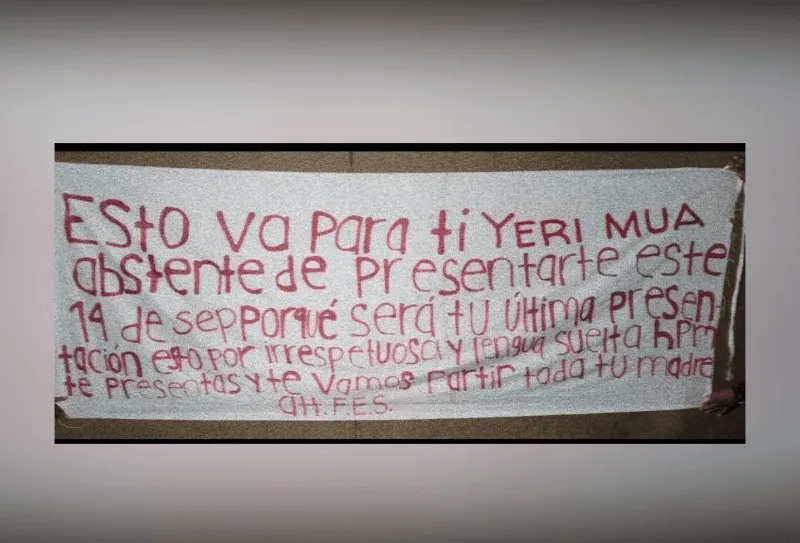 Esto va para ti YERI MUA
abstente de presentarte este
14 de sep porqué será tu última presen
tación esto por irrespetuosa y lengua suelta hpm
te presentas y te vamos partir toda tu madre
att. F.E.S.